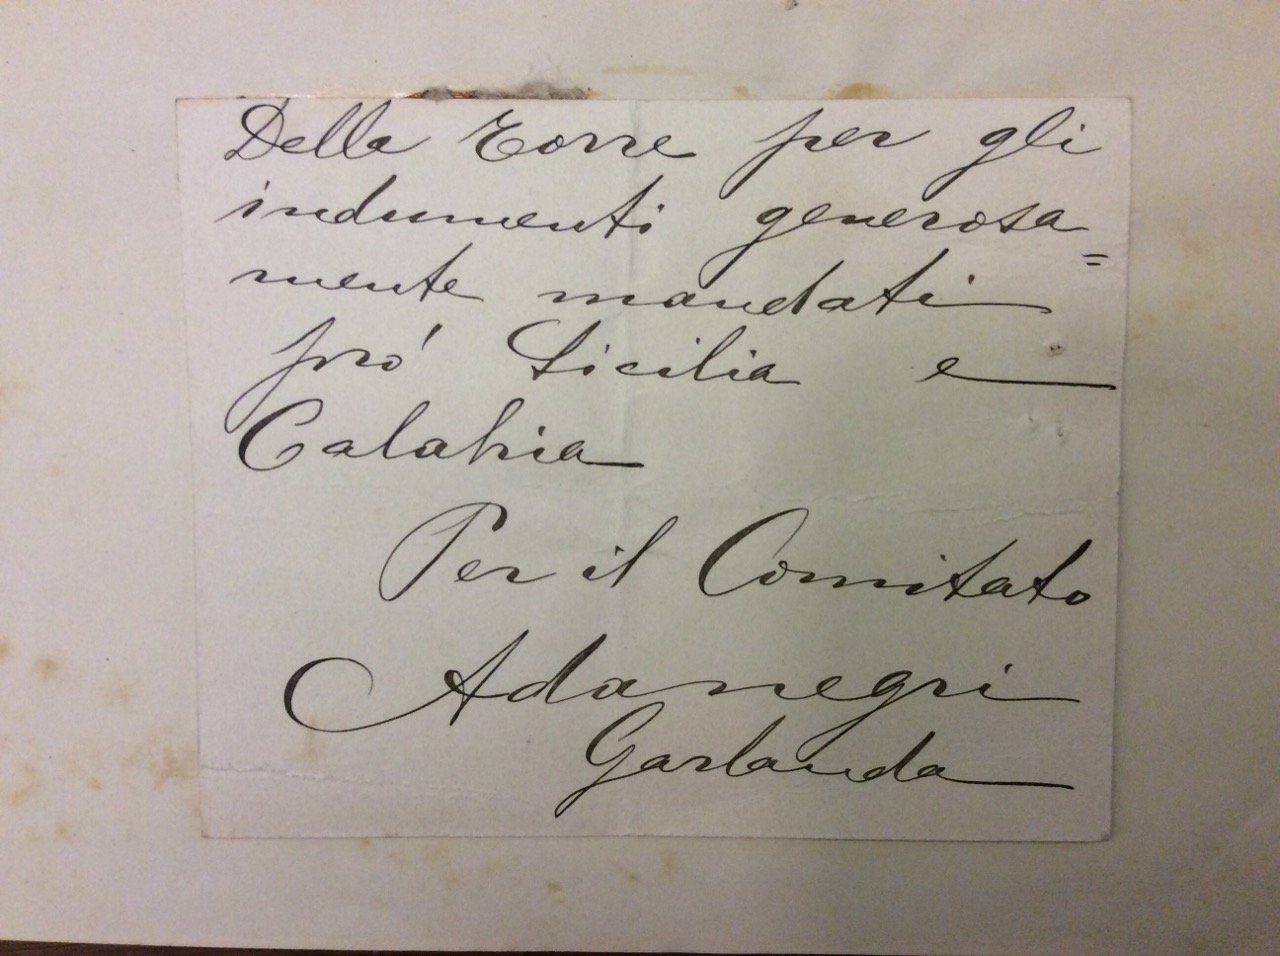 Della Torre per gli
indumenti generosa=
mente mandati
pró Sicilia e
Calabria
Per il Comitato
Adanegri
Garlanda